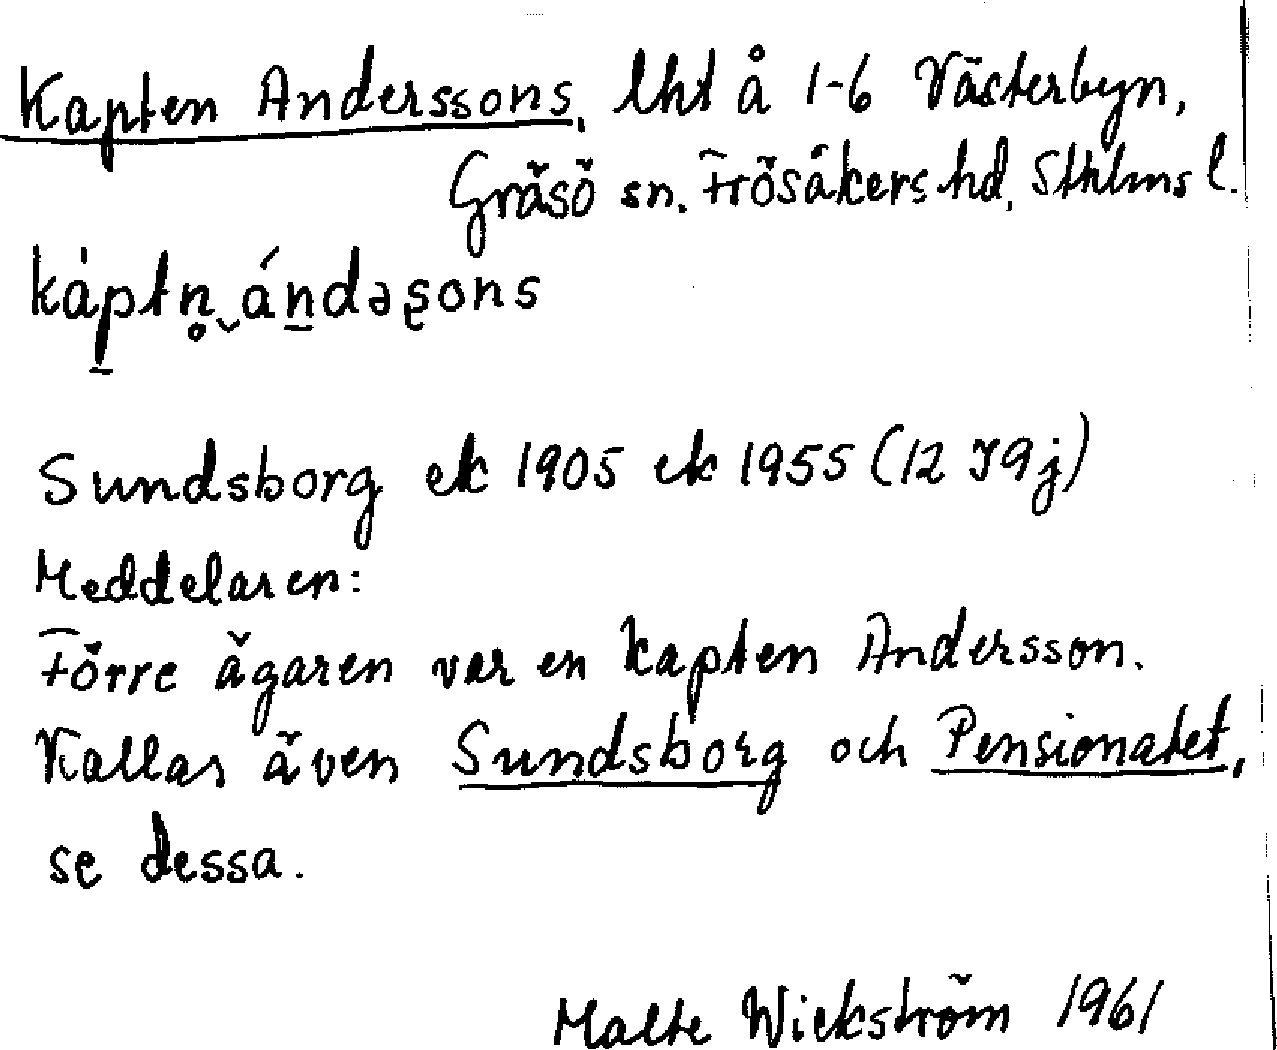 Kapten Anderssons, lht å 1-6 Västerbyn,
Gräsö sn. Frösåkers hd, Sthlms l.
káptn̥˯ándəşons
Sundsborg ek 1905 ek 1955 (12 I9j)
Meddelaren:
Förre ägaren var en kapten Andersson.
Kallas även Sundsborg och Pensionatet,
se dessa.
Malte Wickström 1961